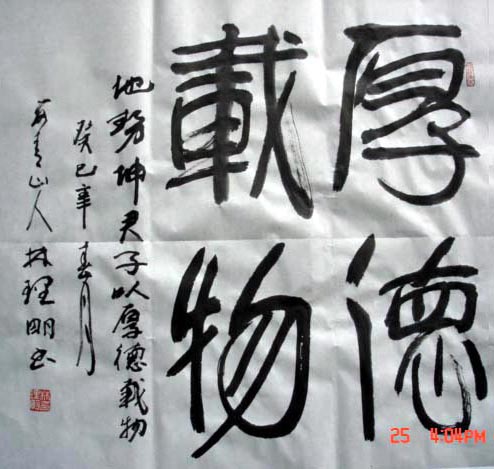 厚德
載物
地势坤君子以厚德载物
癸巳年春月
青山人林理明书
25 4:04PM